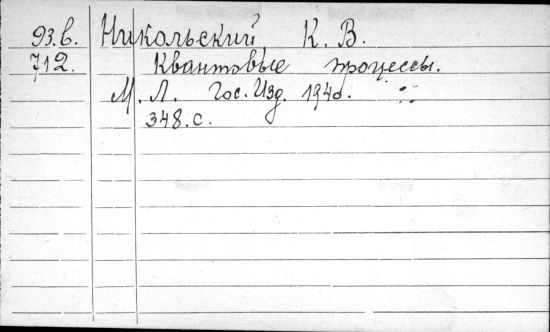 93.в. Никольский К. В.
712. Квантовые процессы.
М. Л. Гос. Изд. 1940.
348. с.